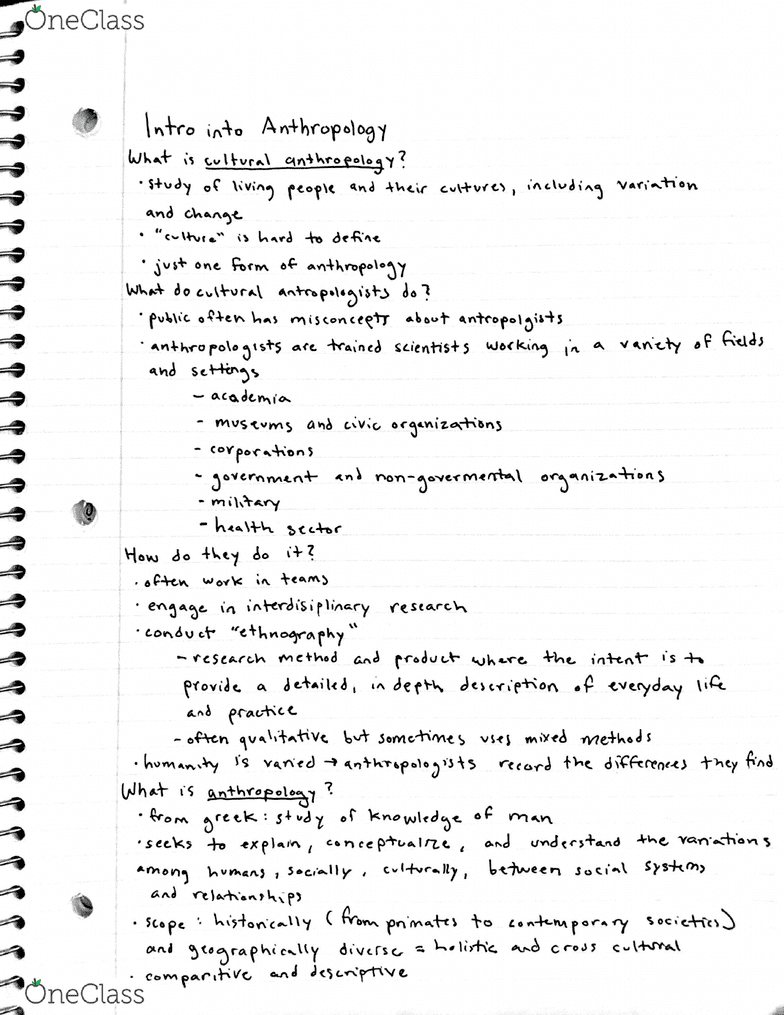 OneClass
Intro into Anthropology
What is cultural anthropology?
· study of living people and their cultures, including variation
and change
· "culture" is hard to define
· just one form of anthropology
What do cultural antropologists do?
· public often has misconcepts about antropolgists
· anthropologists are trained scientists working in a variety of fields
and settings
- academia
- museums and civic organizations
- corporations
- government and non-govermental organizations
- military
- health sector
How do they do it?
· often work in teams
· engage in interdisiplinary research
· conduct "ethnography"
- research method and product where the intent is to
provide a detailed, in depth description of everyday life
and practice
- often qualitative but sometimes uses mixed methods
· humanity is varied → anthropologists record the differences they find
What is anthropology?
· from greek: study of knowledge of man
· seeks to explain, conceptualize, and understand the variations
among humans, socially, culturally, between social systems
and relationships
· scope: historically (from primates to contemporary societies)
and geographically diverse = holistic and cross cultural
· comparitive and descriptive
OneClass